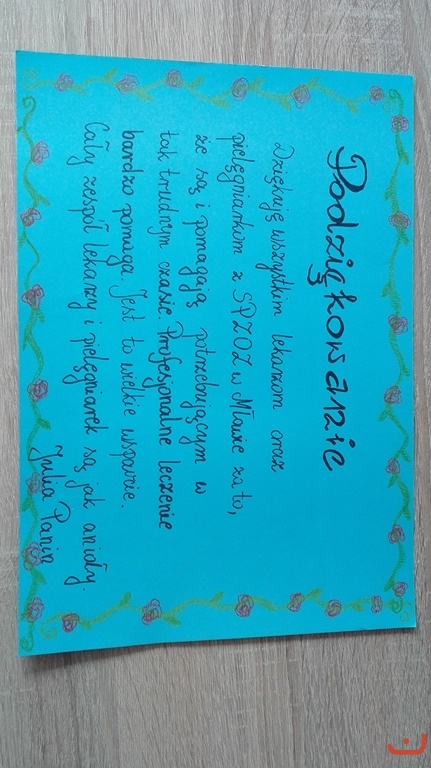 Podziękowanie
Dziękuję wszystkim lekarzom oraz
pielęgniarkom z SPZOZ w Mławie za to,
że są i pomagają potrzebującym w
tak trudnym czasie. Profesjonalne leczenie
bardzo pomaga. Jest to wielkie wsparcie.
Cały zespół lekarzy i pielęgniarek są jak anioły.
Julia Panin